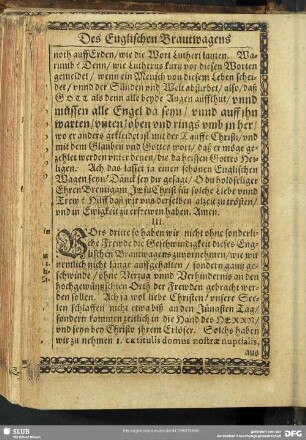 Des Englischen Brautwagens
noch auff Erden / wie die Wort Lutheri lauten. Wa-
rumb? Denn / wie Lutherus kurtz vor diesen Worten
gemeldet / wenn ein Mensch von diesem Leben schei-
det / vnnd der Sünden vnd Welt abstirbet / also / daß
GOTT als denn alle beyde Augen auffthut / vnnd
müssen alle Engel da seyn / vnnd auff ihn
warten / vnten / oben vnd rings vmb jn her /
wo er anders gekleidet ist mit der Tauffe Christi / vnd
mit dem Glauben vnd Gottes wort / daß er möge ge-
zehlet werden vnter denen / die da heissen Gottes Hei-
ligen. Ach das lasset ja einen schönen Englischen
Wagen seyn! Danck sey dir gesagt / O du holdseliger
Ehren Breutigam Jesu Christ für solche Liebe vnnd
Trew: Hilff daß wir vns derselben alzeit zu trösten /
vnd in Ewigkeit zu erfrewen haben. Amen.
III.
VOrs dritte so haben wir nicht ohne sonderli-
che Frewde die Geschwindigkeit dieses Eng-
lischen Brautwagens zuvornehmen / wie wir
nemlich nicht lange auffgehalten / sondern gantz ge-
schwinde / ohne Verzug vnnd Verhindernis an den
hochgewünschten Orth der Frewden gebracht wer-
den sollen. Ach ja wol liebe Christen / vnsere See-
len schlaffen nicht etwa biß an den Jüngsten Tag /
sondern kommen zeitlich in die Hand des HERRN /
vnd seyn bey Christo ihrem Erlöser. Solchs haben
wir zu nehmen 1. ex titulis domus nostræ nuptialis,
aus
SLUB
DFG